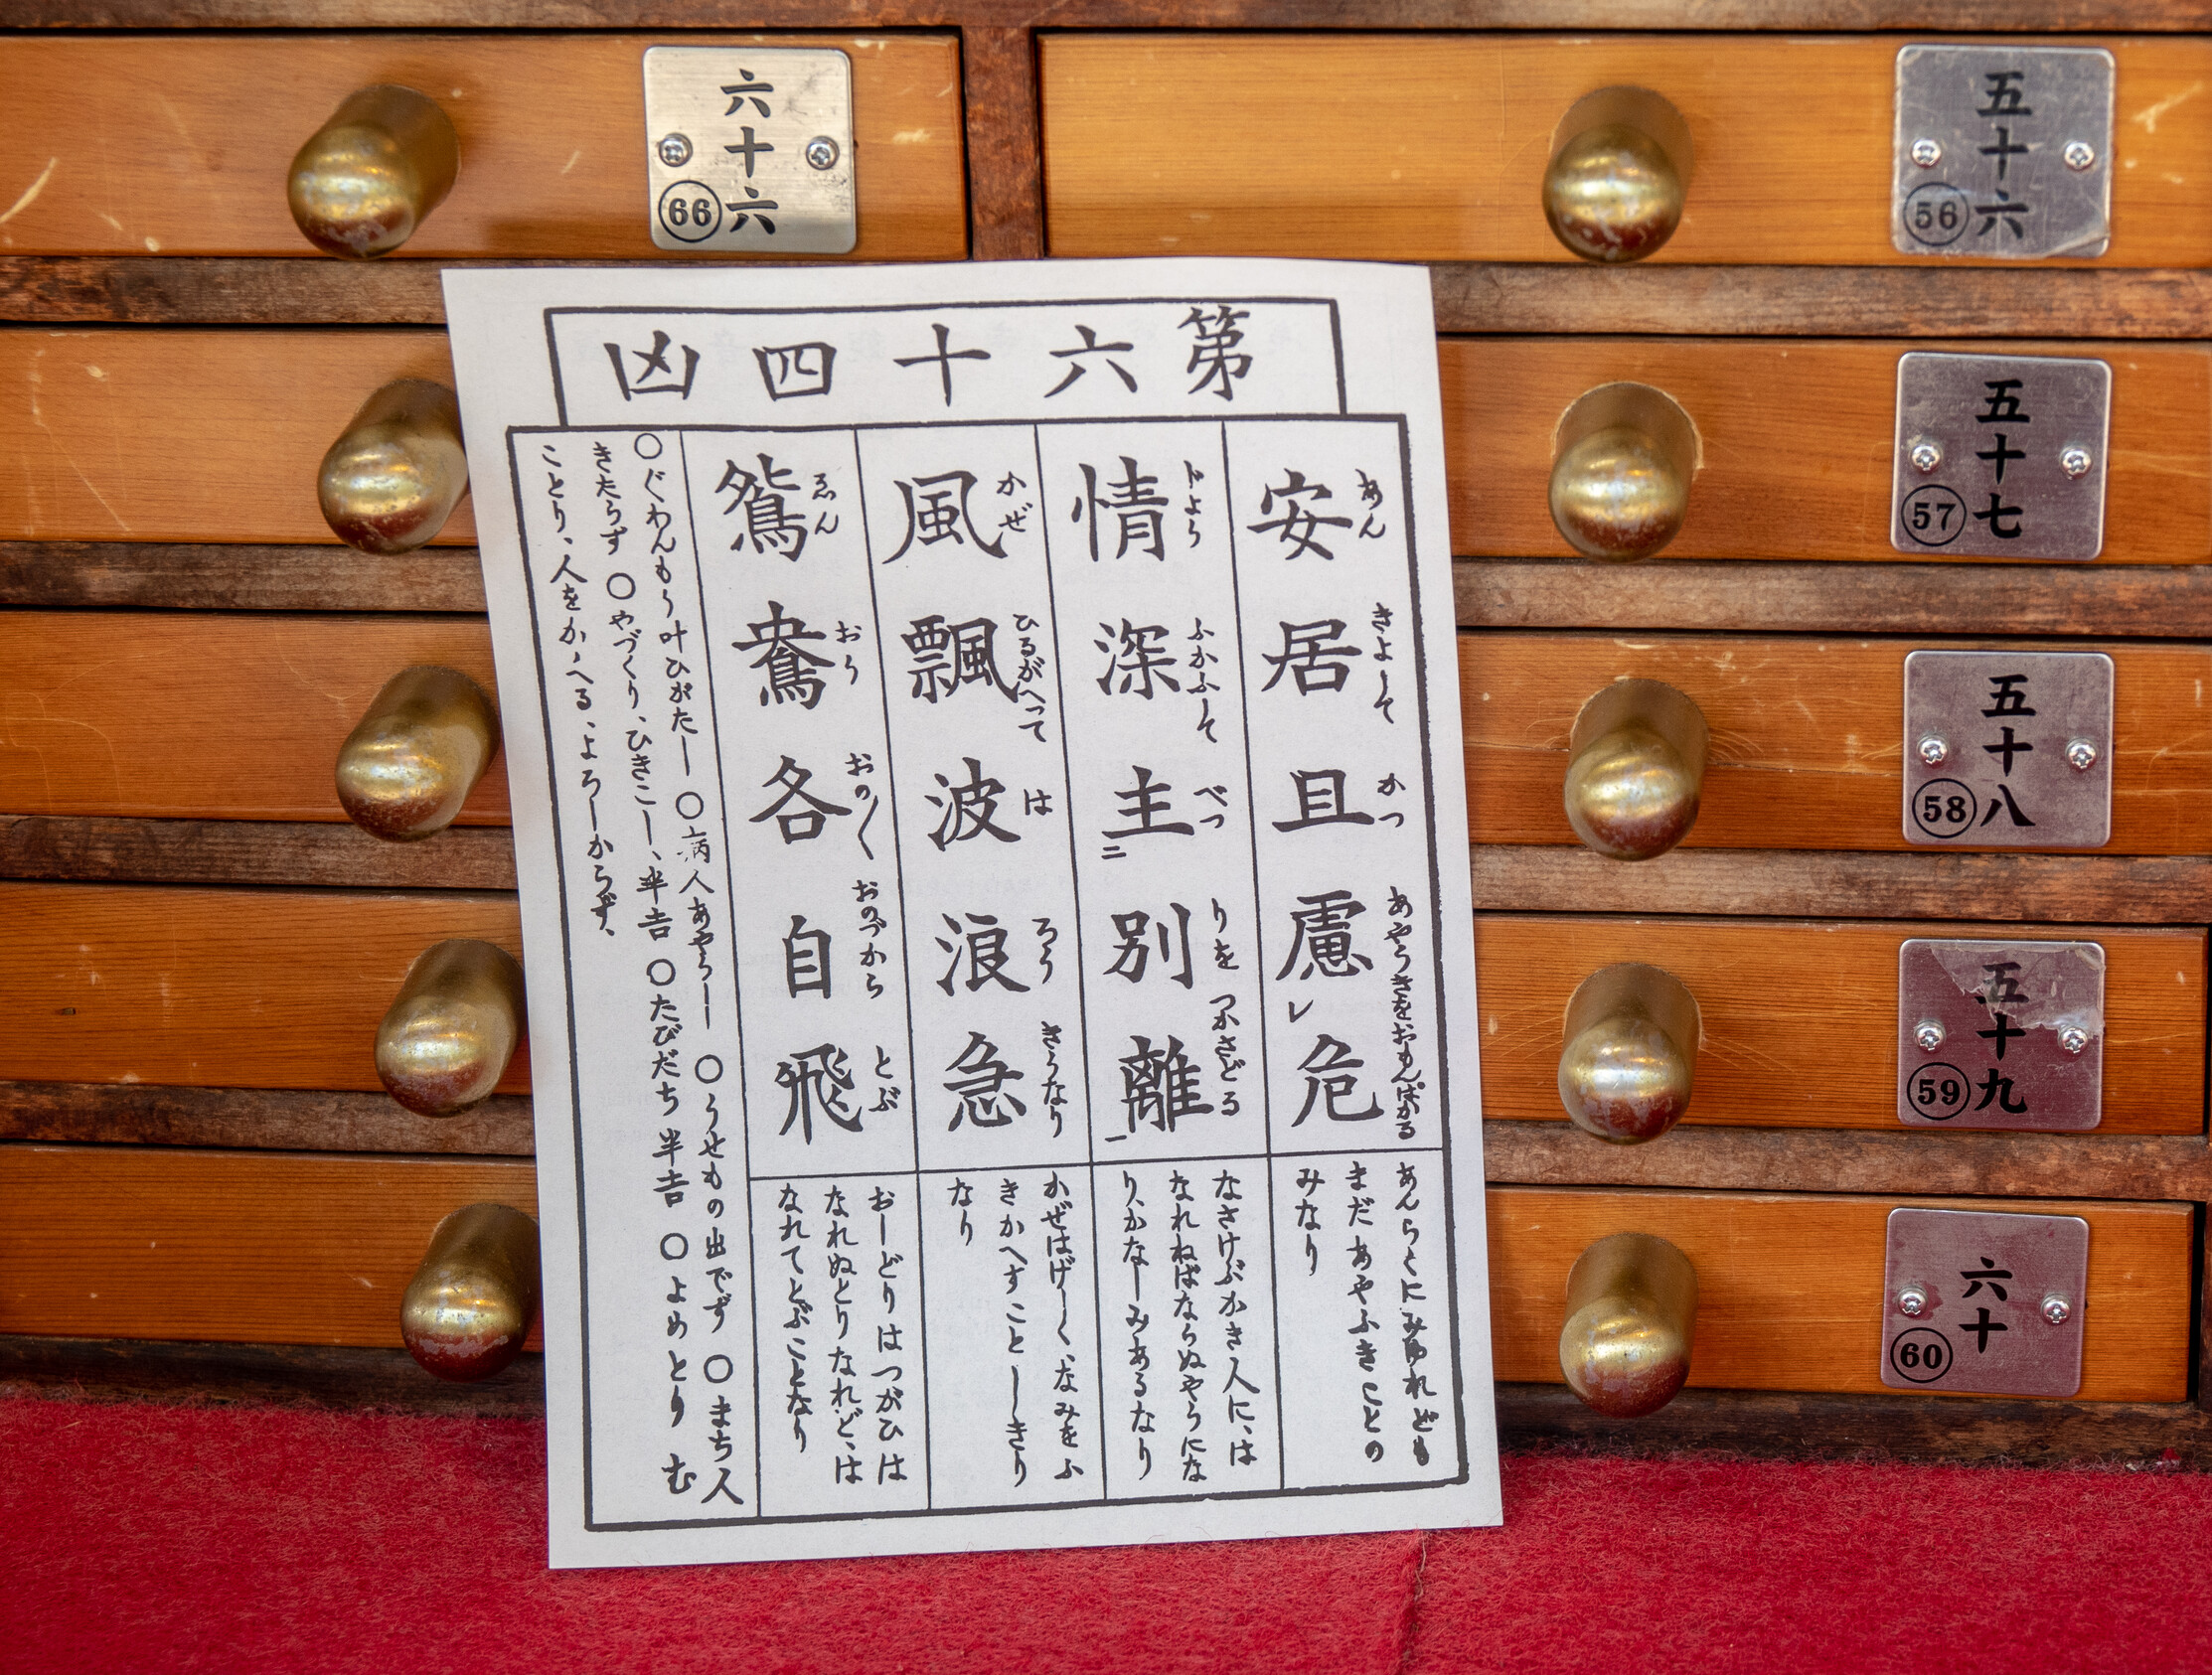 第六十四凶
安居且慮レ危
あん きよして かつ あやうきをおもんばかる
情深主二別離一
じよう ふかふして べつ りを つかさどる
風飄波浪急
かぜ ひるがへつて は ろう きうなり
鴛鴦各自飛
ゑん おう おの〱 おのづから とぶ
あんらくにみゆれども
まだあやふきことの
みなり
なさけぶかき人に、は
なれねばならぬやうにな
り、かなしみあるなり
かぜはげしく、なみをふ
きかへすことしきり
なり
おしどりはつがひは
なれぬとりなれど、は
なれてとぶことなり
〇ぐわんもう叶ひがたし〇病人あやうし〇うせもの出でず〇まち人
きたらず〇やづくり、ひきこし、半吉〇たびだち半吉〇よめとりむ
ことり、人をかゝへる、よろしからず、
六十六
66
五十六
56
五十七
57
五十八
58
五十九
59
六十
60